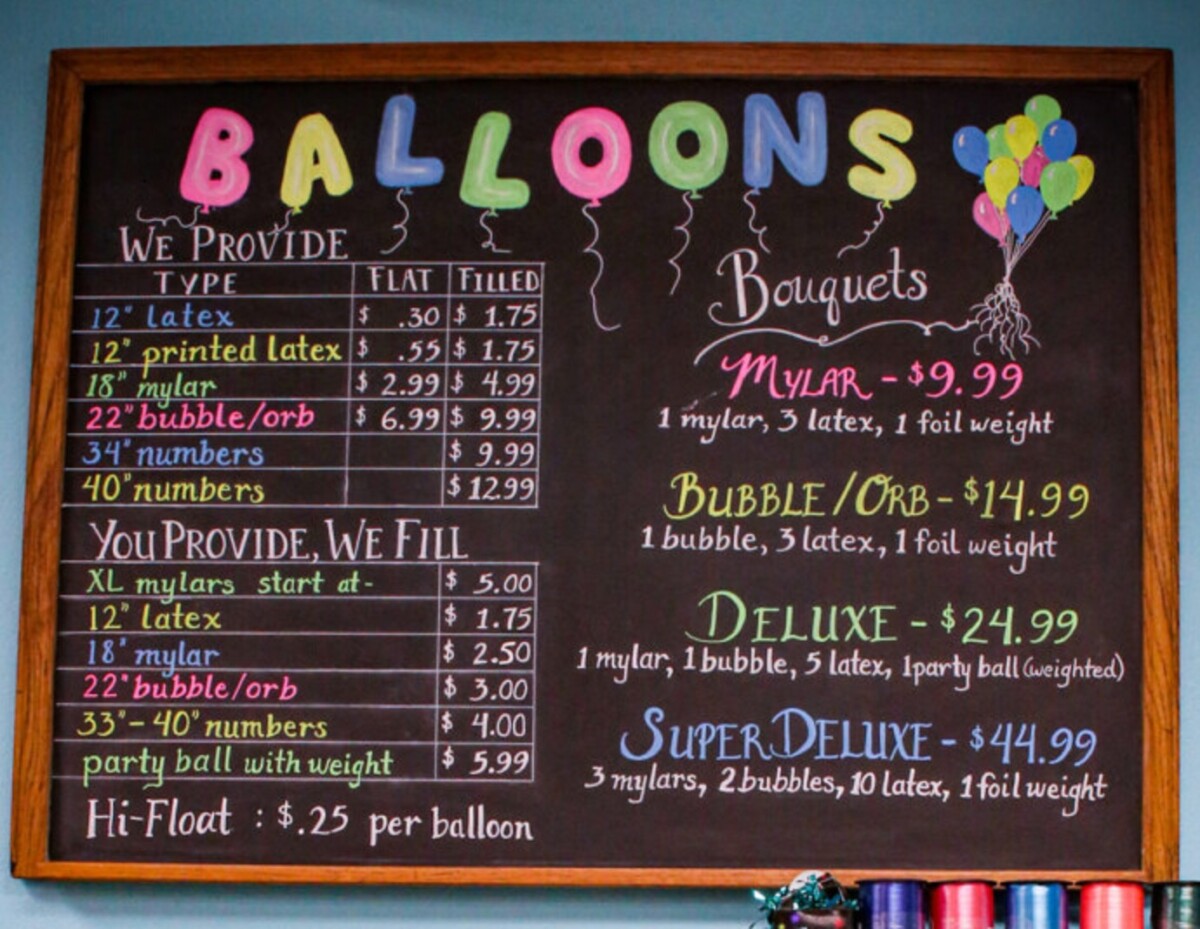 BALLOONS
WE PROVIDE
TYPE FLAT FILLED
12" latex $ .30 $ 1.75
12" printed latex $ .55 $ 1.75
18" mylar $ 2.99 $ 4.99
22" bubble/orb $ 6.99 $ 9.99
34" numbers $ 9.99
40" numbers $ 12.99
YOU PROVIDE, WE FILL
XL mylars start at- $ 5.00
12" latex $ 1.75
18" mylar $ 2.50
22" bubble/orb $ 3.00
33"-40" numbers $ 4.00
party ball with weight $ 5.99
Hi-Float : $.25 per balloon
Bouquets
MYLAR - $9.99
1 mylar, 3 latex, 1 foil weight
BUBBLE/ORB - $14.99
1 bubble, 3 latex, 1 foil weight
DELUXE - $24.99
1 mylar, 1 bubble, 5 latex, 1 party ball (weighted)
SUPER DELUXE - $44.99
3 mylars, 2 bubbles, 10 latex, 1 foil weight